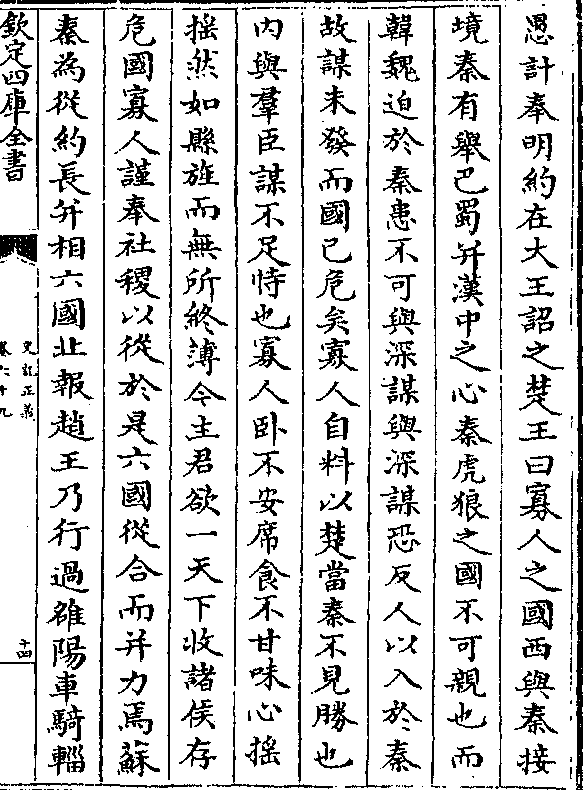 愚計奉明約在大王詔之楚王曰寡人之國西與秦接
境秦有舉巴蜀并漢中之心秦虎狼之國不可親也而
韓魏迫於秦患不可與深謀與深謀恐反人以入於秦
故謀未發而國已危矣寡人自料以楚當秦不見勝也
内與羣臣謀不足恃也寡人卧不安席食不甘味心搖
搖然如縣旌而無所終薄今主君欲一天下收諸侯存
危國寡人謹奉社稷以從於是六國從合而并力焉蘇
秦為從約長并相六國北報趙王乃行過雒陽車騎輜
欽定四庫全書
史記正義
卷六十九
十四